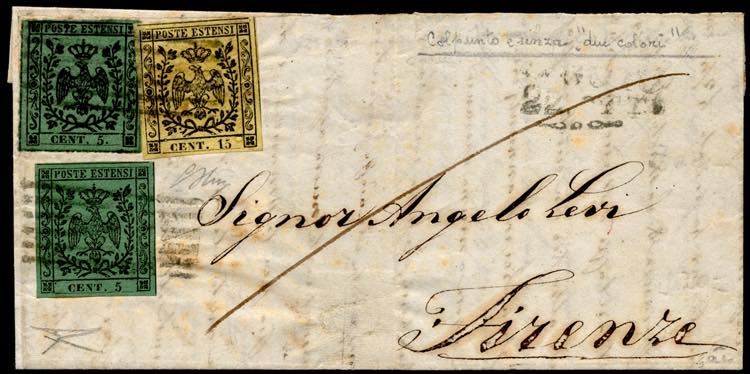 POSTE ESTENSI
CENT. 5.
POSTE ESTENSI
CENT. 15
Col punto e senza "due colori"
22 OTT
POSTE ESTENSI
CENT. 5
Signor Angelo Levi
Firenze